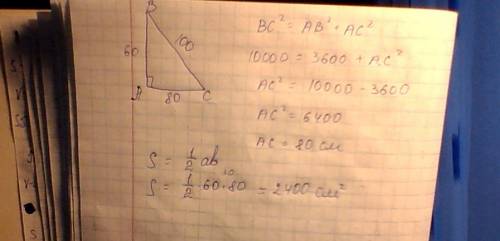 B
60
100
A
80
C
BC² = AB² + AC²
10000 = 3600 + AC²
AC² = 10000 - 3600
AC² = 6400
AC = 80 см
S = 1/2 ab
S = 1/2 · 60 · 80 = 2400 см²